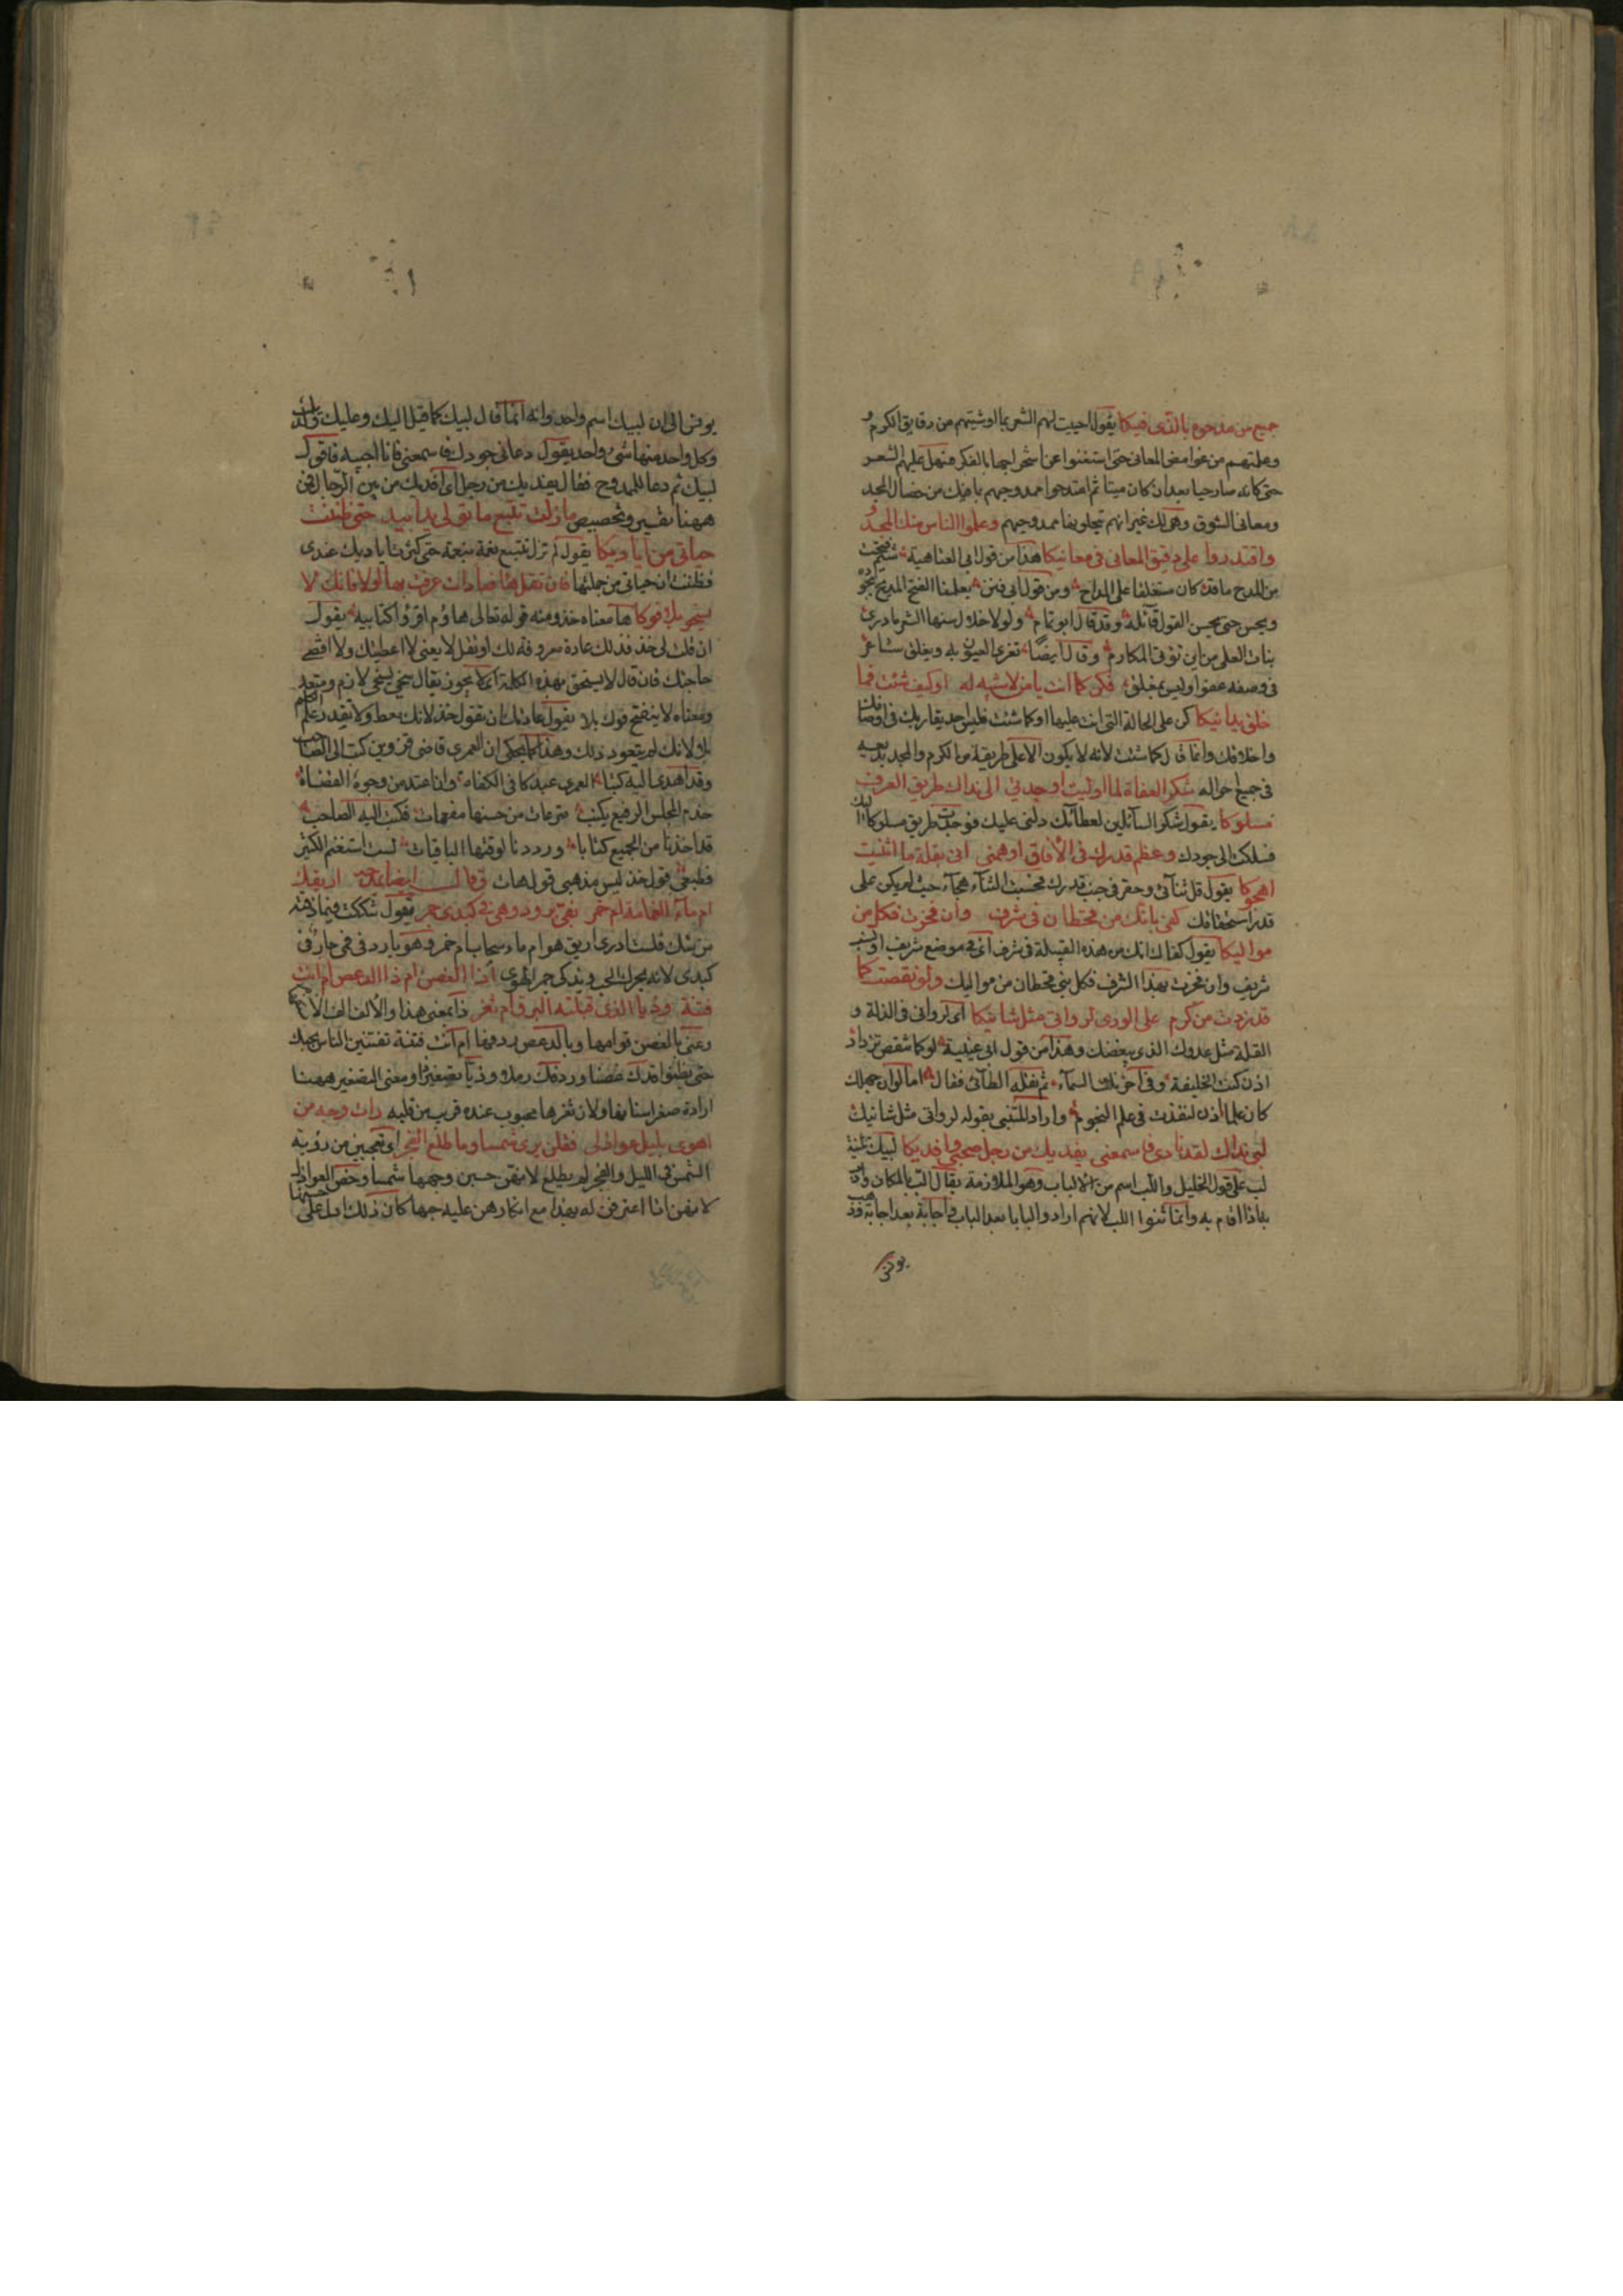 جميع من مدحوه بالذى فيكا يقول احييت لهم الشعر بما اوشيتهم من دقايق الكرم و
وعلمتهم من غوامض المعانى حتى استغنوا عن استخراجها بالفكر فسهل عليهم الشعر
حتى كانه صار حيا بعد ان كان ميتا ثم امتدحوا ممدوحهم بما فيك من خصال المجد
ومعانى الشرف وهى لك غير انهم يحلون بها ممدوحهم وعلموا الناس منك المجد
واقتدروا على دقيق المعانى فى معانيكا هذا من قول ابى العتاهية شيم فتحت
من المدح ما قد كان مستغلقا على المداح ومن قول ابى فنن يعلمنا الفتح المديح بجوده
ويحسن حتى يحسن القول قائله وقد قال ابو تمام ولولا خلال سنها الشعر ما درى
بناة العلى من اين توتى المكارم وقال ايضا تغرى العيون به ويفلق شاعر
فى وصفه عفوا وليس بمفلق فكن كما انت يا من لا شبه له او كيف شئت فما
خلق يدانيكا كن على الحالة التى انت عليها او كما شئت فليس احد يقاربك فى اوصافك
واخلاقك وانما قال كما شئت لانه لا يكون الا على طريقة من الكرم والمجد بديعة
فى جميع احواله شكر العفاة لما اوليت اوجدنى الى نداك طريق العرف
مسلوكا يقول شكر السائلين لعطائك دلنى عليك فوجدت طريق مسلوكا اليك
فسلكت الى جودك وعظم قدرك فى الآفاق اوهمنى انى بقلة ما اثنيت
اهجوكا يقول قل ثنائى وحقر فى جنب قدرك فحسبت الثناء هجاء حيث لم يكن على
قدر استحقاقك كفى بانك من قحطان فى شرف وان فخرت فكل من
مواليكا يقول كفاك انك من هذه القبيلة فى شرف اى فى موضع شريف او نسب
شريف وان فخرت بهذا الشرف فكل بنى قحطان من مواليك ولو نقصت كما
قد زدت من كرم على الورى لراونى مثل شانيكا اى لراونى فى الذلة و
القلة مثل عدوك الذى يبغضك وهذا من قول ابى عيينة لو كما تنقص تزداد
اذن كنت الخليفة وفى آخر نلت السماء ثم نقله الطائى فقال اما لو ان جهلك
كان علما اذن لنفذت فى علم النجوم واراد المتنبى بقوله لراونى مثل شانيك
لبى نداك لقد نادى فاسمعنى يفديك من رجل صحبى وافديكا لبيك تثنية
لب على قول الخليل واللب اسم من الالباب وهو الملازمة يقال الب بالمكان
بذا اذا اقام به وانما ثنوا اللب لانهم ارادوا البابا بعد الباب اى اجابة بعد اجابة وذهب
يونس
يونس الى ان لبيك اسم واحد وانه انما قال لبيك كما قيل اليك وعليك
وكل واحد منها شىء واحد يقول دعانى جودك فاسمعنى فانا اجيبه فاقول
لبيك ثم دعا للممدوح فقال يفديك من رجل اى افديك من بين الرجال فمن
ههنا تفسير وتخصيص ما زلت تتبع ما تولى يدا بيد حتى ظننت
حياتى من اياديكا يقول لم تزل تتبع نعمة بنعمة حتى كثرت اياديك عندى
فظننت ان حياتى من جملتها فان تقل ها فعادات عرفت بها او لا فانك لا
يسخو بلا فوكا ها معناه خذ ومنه قوله تعالى هاؤم اقرؤا كتابيه يقول
ان قلت لى خذ فذلك عادة معروفة لك او تقل لا يعنى لا اعطيك ولا اقضى
حاجتك فان قال لا يستحق بهذه الكلمة انما يجوز يقال سخى يسخى لازم ومتعد
ومعناه لا ينفتح فوك بلا يقول عادتك ان تقول خذ لانك معط ولا تقدر على التكلم
بلا لانك لم تتعود ذلك وهذا كما يحكى ان العمرى قاضى قزوين كتب الى الصاحب
وقد اهدى اليه كتبا العمرى عبد كافى الكفاة وان اعتد من وجوه القضاة
خدم المجلس الرفيع بكتب مترعات من حسنها مفعمات فكتب اليه الصاحب
قد اخذنا من الجميع كتابا ورددنا لوقتها الباقيات لست استغنم الكثير
فطبعى قول خذ ليس مذهبى قول هات وقال ايضا يمدحه اريقك
ام ماء الغمامة ام خمر بفى برود وهى فى كبدى جمر يقول شككت فيما ذقته
من شك فلست ادرى اريق هو ام ماء سحاب ام خمر وهو بارد فى فمى حار فى
كبدى لانه يحرك الحب ويذكى جمر الهوى اذا الغصن ام ذا الدعص ام انت
فتنة وذيا الذى قبلته البرق ام ثغر ذا بمعنى هذا والالف الف الاستفهام
وعنى بالغصن قوامها وبالدعص ردفها ام انت فتنة تفتنين الناس بحبك
حتى يظنوا قدك غصنا وردفك رملا وذيا تصغير ذا ومعنى التصغير ههنا
ارادة صغر اسنانها ولان ثغرها محبوب عنده قريب من قلبه رات وجه من
اهوى بليل عواذلى فقلن نرى شمسا وما طلع الفجر اى تعجبن من رؤية
الشمس فى الليل والفجر لم يطلع لانهن حسبن وجهها شمسا وخص العواذل
لانهن اذا اعترفن له بهذا مع انكارهن عليه حبها كان ذلك ادل على حسنها